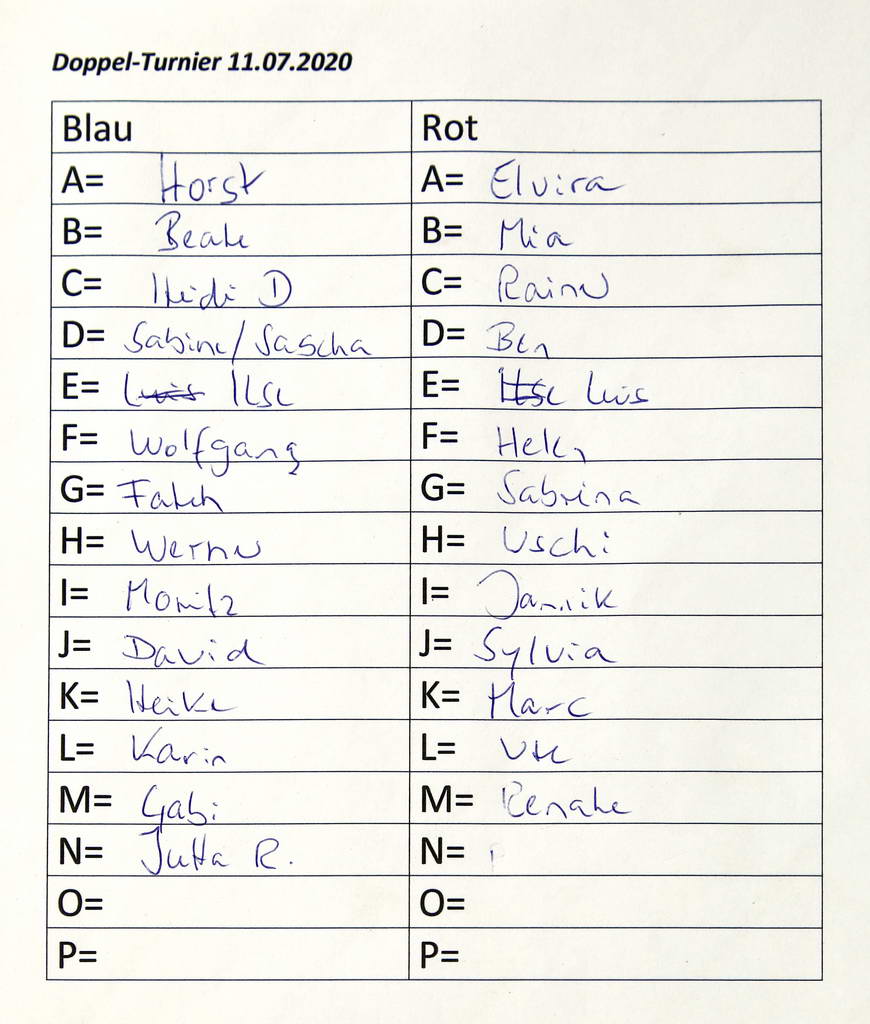 Doppel-Turnier 11.07.2020
Blau Rot
A= Horst A= Elvira
B= Beate B= Mia
C= Heidi D C= Rainer
D= Sabine/Sascha D= Ben
E= Luis Ilse E= Ilse Luis
F= Wolfgang F= Helen
G= Fateh G= Sabrina
H= Werner H= Uschi
I= Moritz I= Jannik
J= David J= Sylvia
K= Heike K= Marc
L= Karin L= Ute
M= Gabi M= Renate
N= Jutta R. N=
O= O=
P= P=